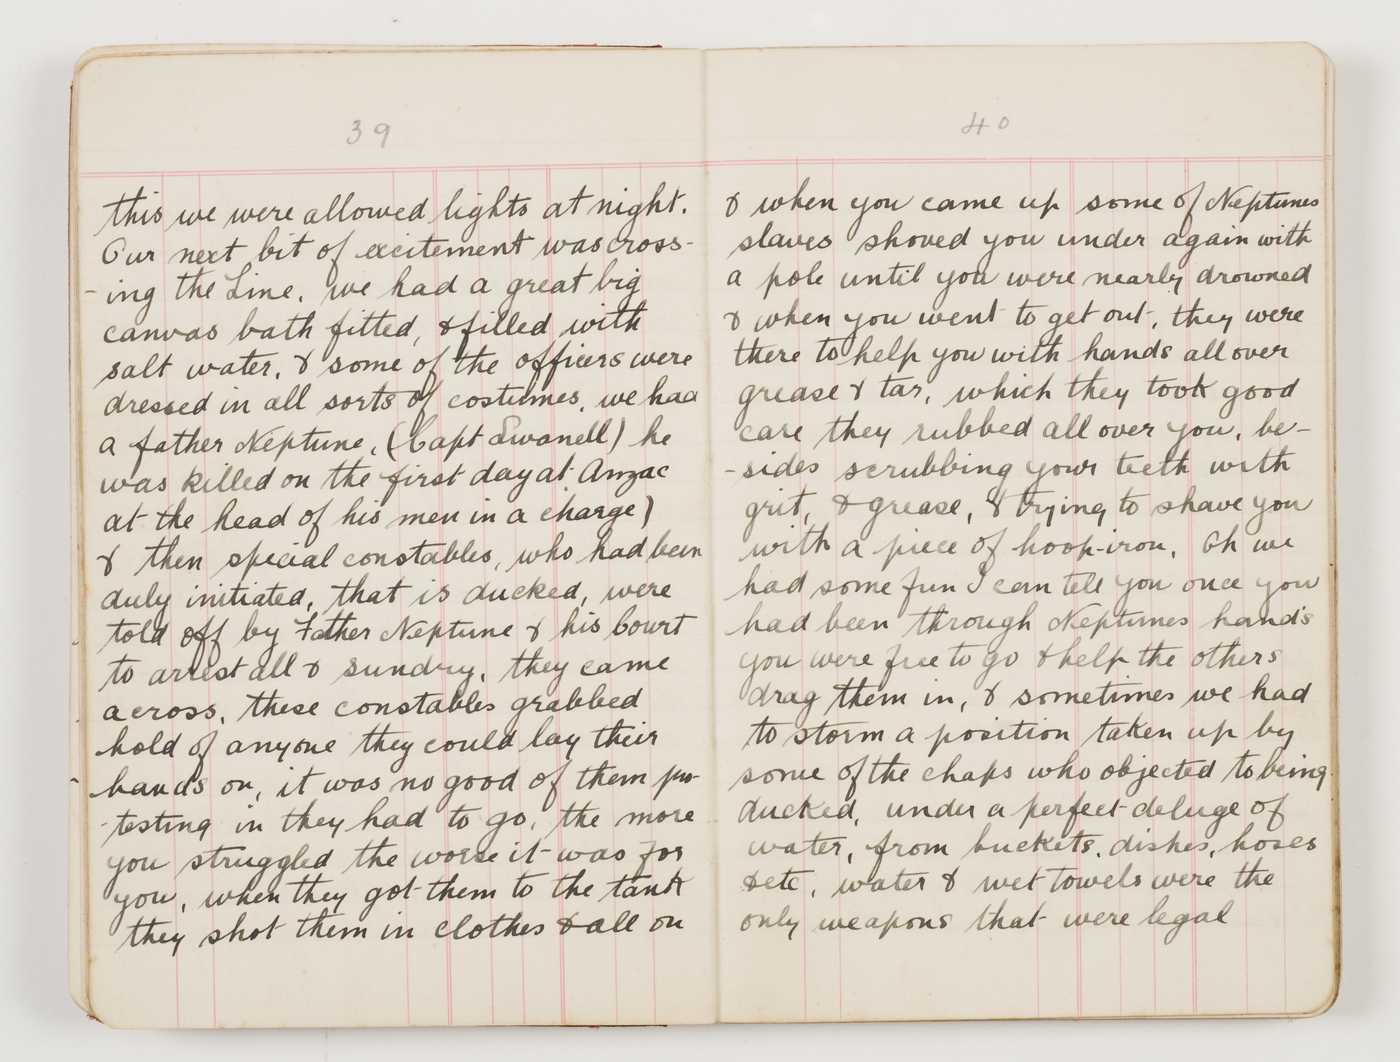 39
this we were allowed lights at night.
Our next bit of excitement was cross-
-ing the Line, we had a great big
canvas bath fitted, & filled with
salt water, & some of the officers were
dressed in all sorts of costumes, we had
a father Neptune, (Capt Swanell) he
was killed on the first day at Anzac
at the head of his men in a charge)
& then special constables, who had been
duly initiated, that is ducked, were
told off by Father Neptune & his Court
to arrest all & sundry, they came
across, these constables grabbed
hold of anyone they could lay their
hands on, it was no good of them pro-
-testing in they had to go, the more
you struggled the worse it was for
you, when they got them to the tank
they shot them in clothes & all on
40
& when you came up some of Neptunes
slaves shoved you under again with
a pole until you were nearly drowned
& when you went to get out, they were
there to help you with hands all over
grease & tar, which they took good
care they rubbed all over you, be-
-sides scrubbing your teeth with
grit, & grease, & trying to shave you
with a piece of hoop-iron, Oh we
had some fun I can tell you once you
had been through Neptunes hands
you were free to go & help the others
drag them in, & sometimes we had
to storm a position taken up by
some of the chaps who objected to being
ducked, under a perfect deluge of
water, from buckets, dishes, hoses
& etc, water & wet towels were the
only weapons that were legal